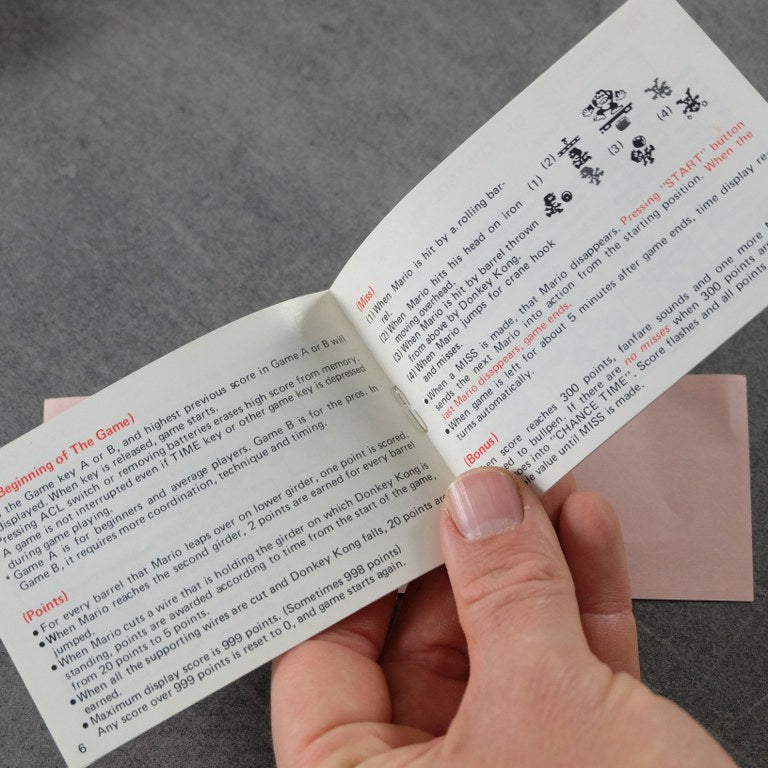 Beginning of The Game)
the Game key A or B, and highest previous score in Game A or B will
displayed. When key is released, game starts.
ressing ACL switch or removing batteries erases high score from memory.
A game is not interrupted even if TIME key or other game key is depressed
during game playing.
• Game A is for beginners and average players. Game B is for the pros. In
Game B, it requires more coordination, technique and timing.
(Points)
• For every barrel that Mario leaps over on lower girder, one point is scored.
• When Mario reaches the second girder, 2 points are earned for every barrel
jumped.
• When Mario cuts a wire that is holding the girder on which Donkey Kong is
standing, points are awarded according to time from the start of the game,
from 20 points to 5 points.
• When all the supporting wires are cut and Donkey Kong falls, 20 points are
earned.
• Maximum display score is 999 points. (Sometimes 998 points)
Any score over 999 points is reset to 0, and game starts again.
6
(Miss)
(1) When Mario is hit by a rolling bar-
rel.
(2) When Mario hits his head on iron
moving overhead.
(3) When Mario is hit by barrel thrown
from above by Donkey Kong.
(4) When Mario jumps for crane hook
and misses.
(1) (2) (3) (4)
• When a MISS is made, that Mario disappears. Pressing "START" button
sends the next Mario into action from the starting position. When the
last Mario disappears, game ends.
• When game is left for about 5 minutes after game ends, time display re-
turns automatically.
(Bonus)
score reaches 300 points, fanfare sounds and one more
to bullpen. If there are no misses when 300 points are
into "CHANCE TIME". Score flashes and all points
value until MISS is made.